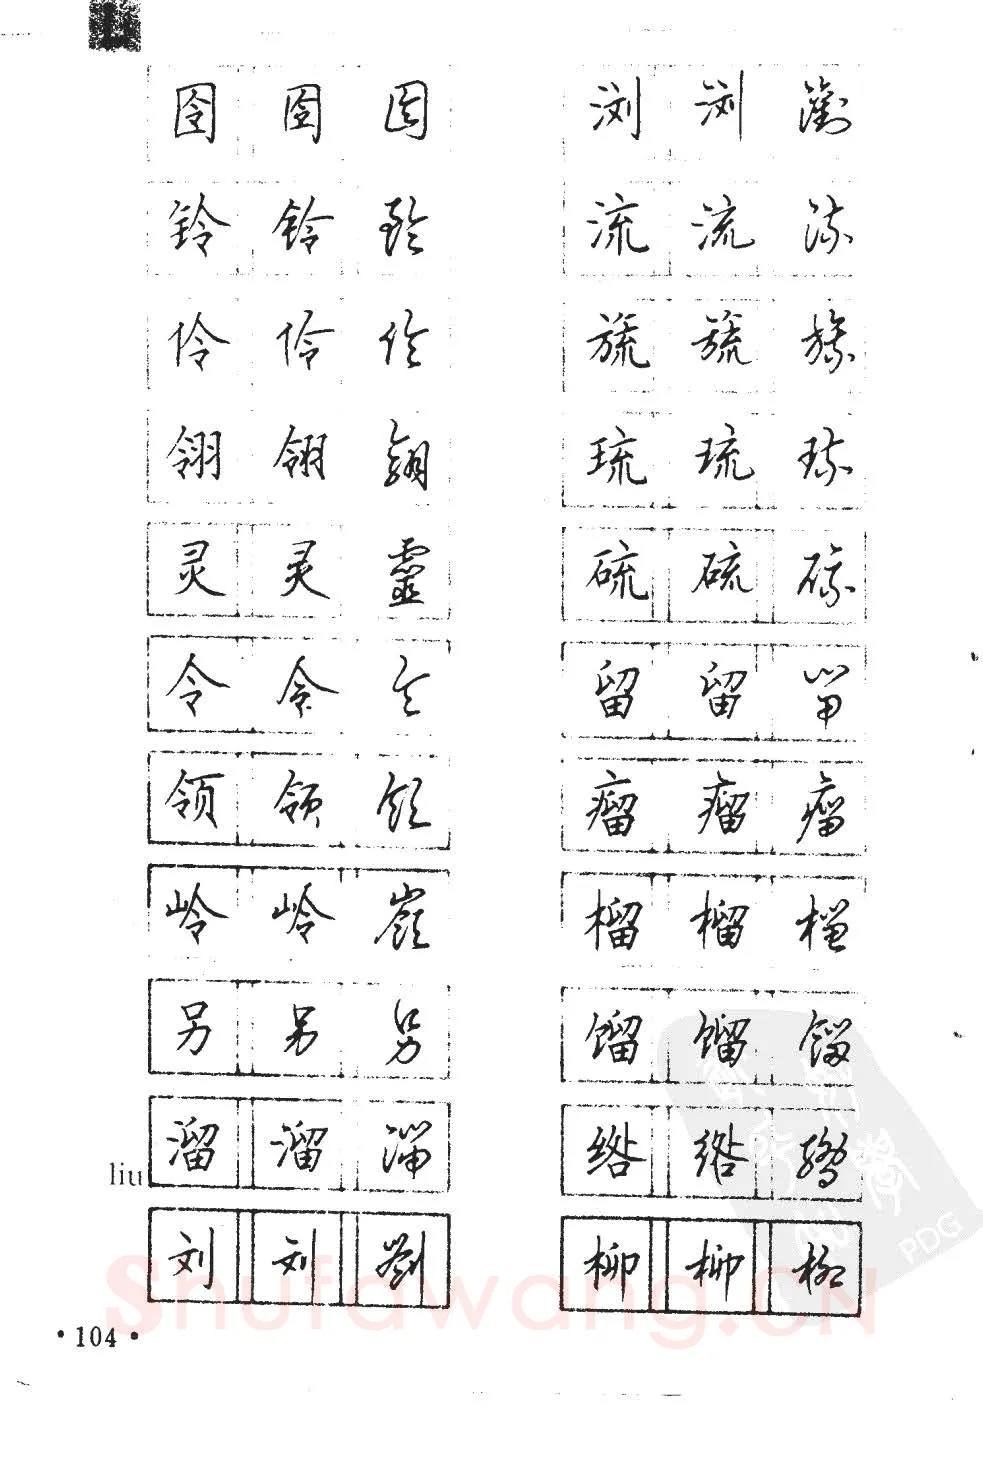 L
囹 囹 囹
铃 铃 鈴
伶 伶 伶
翎 翎 翎
灵 灵 靈
令 令 令
领 领 領
岭 岭 嶺
另 另 另
liu 溜 溜 溜
刘 刘 劉
浏 浏 瀏
流 流 流
旒 旒 旒
琉 琉 琉
硫 硫 硫
留 留 留
瘤 瘤 瘤
榴 榴 榴
馏 馏 餾
绺 绺 綹
柳 柳 柳
·104·
Shufawang.CN
PDG